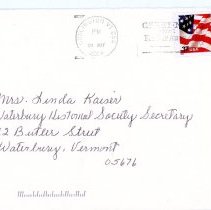 PM
Mrs. Linda Kaiser
Waterbury Historical Society Secretary
2 Butler Street
Waterbury, Vermont
05676